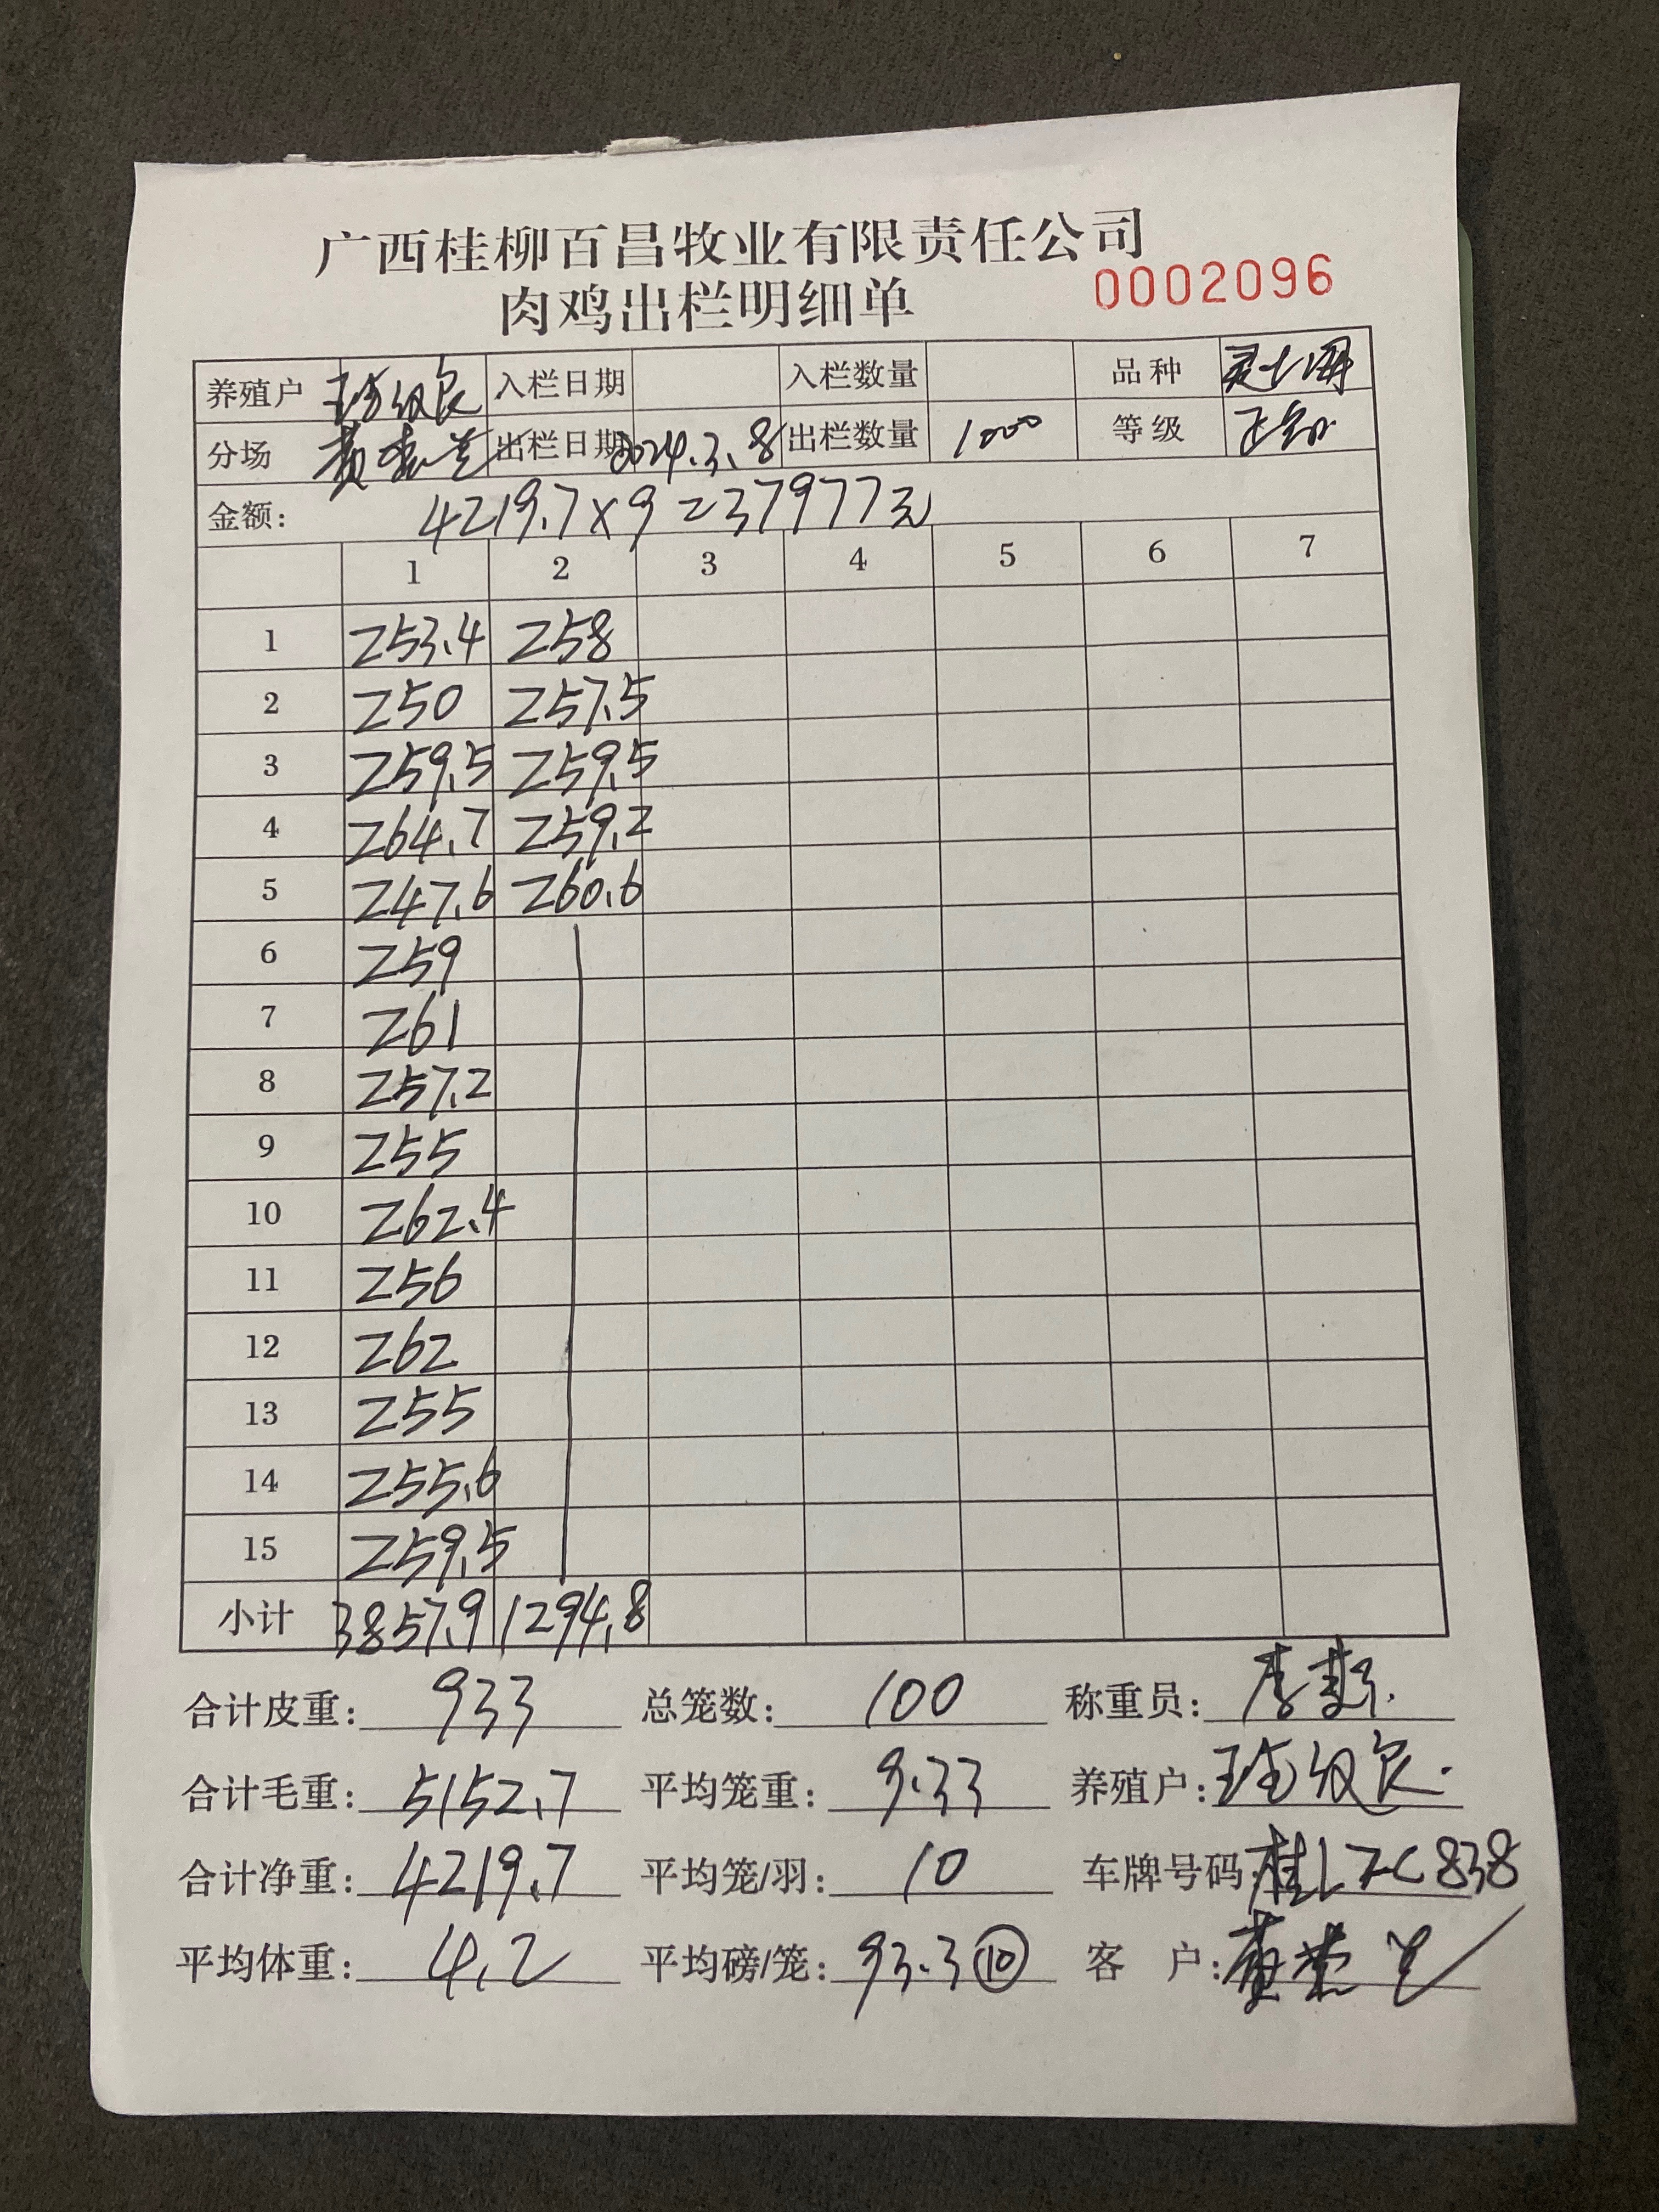 广西桂柳百昌牧业有限责任公司
肉鸡出栏明细单 0002096
养殖户 入栏日期 入栏数量 品种
分场 出栏日期 2024.3.8 出栏数量 1000 等级
金额: 4219.7×9=37977元
1 2 3 4 5 6 7
1 253.4 258
2 250 257.5
3 259.5 259.5
4 264.7 259.2
5 247.6 260.6
6 259
7 261
8 257.2
9 255
10 262.4
11 256
12 262
13 255
14 255.6
15 259.5
小计 3857.9 1294.8
合计皮重: 933 总笼数: 100 称重员:
合计毛重: 5152.7 平均笼重: 9.33 养殖户:
合计净重: 4219.7 平均笼/羽: 10 车牌号码:
平均体重: 4.2 平均磅/笼: 93.3 ⑩ 客 户: